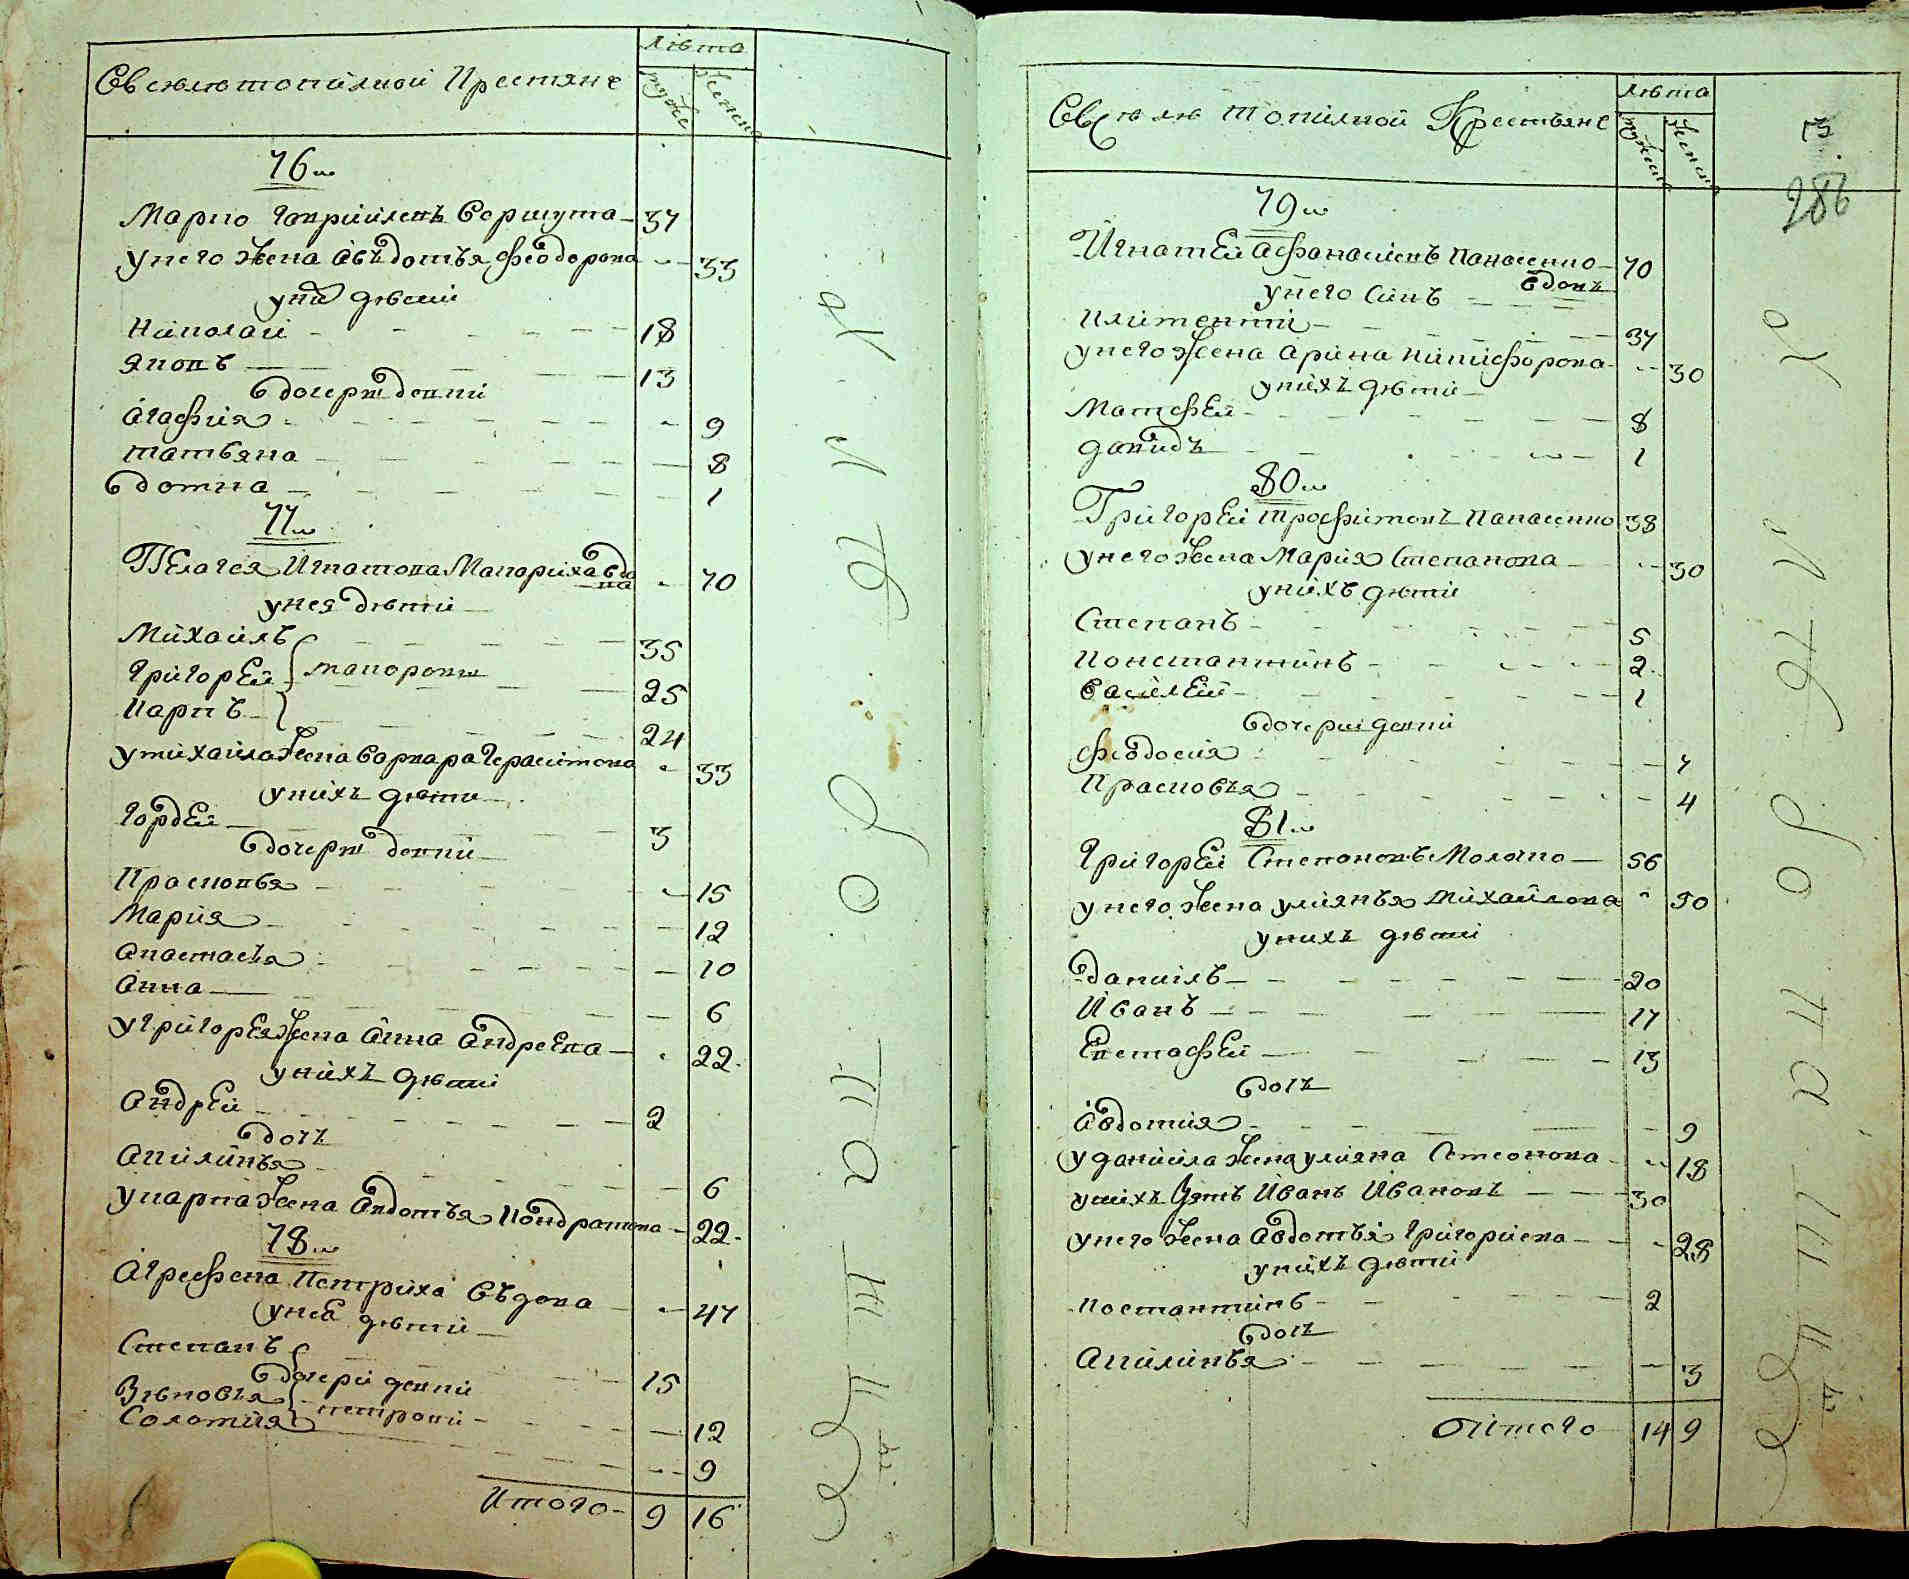 Свселе топилной Крестяне
лета
муже
женск
76
Марко Гаврииловъ Воршута 37
унего жена Авъдотья Феодорова 33
уних дети
Николай 18
Яковъ 13
Вдочери девки
Агафия 9
Татьяна 8
Вдотиа 1
77
Пелагея Игнатова Макариха вдова 70
унея дети
Михаилъ 35
Григорей макоровы 25
Карпъ 24
умихайла жена Варвара Герасимова 33
унихъ дети
Гордей 3
Вдочери девки
Прасковья 15
Мария 12
Анастасъя 10
Анна 6
у Григорея жена Анна Андреева 22
унихъ дети
Андрей 2
Вдочь
Акилинъя 6
укарпа жена Авдотья Кондратова 22
78
Агрефена Петриха Въдова 47
унея дети
Степанъ 15
Вдочери девки
Зеновъя петрови 12
Соломия 9
Итого 9 16
Свселе Топилной Крестьяне
лета
мужеск
женск
286
79
Игнатей Афанасиевъ Панасенко 70
вдовъ
унего синъ
Климентий 37
унего жена Арина Никифорова 30
унихъ дети
Матфей 8
Давидъ 1
80
Григорей Трофимовъ Панасенко 38
унего жена Мария Степанова 30
унихъ дети
Степанъ 5
Констактинъ 2
Василей 1
Вдочери девки
Феодосия 7
Прасковъя 4
81
Григорей Степановъ Молочко 56
унего жена улиянъя Михайлова 50
унихъ дети
Данилъ 20
Иванъ 17
Евстафей 13
Вдочь
Авдотия 9
у даниила жена улияна Семонова 18
унихъ Зять Иванъ Ивановъ 30
унего жена Авдотья Григориева 28
унихъ дети
Костантинъ 2
Вдочь
Акилинъя 3
Итого 14 9